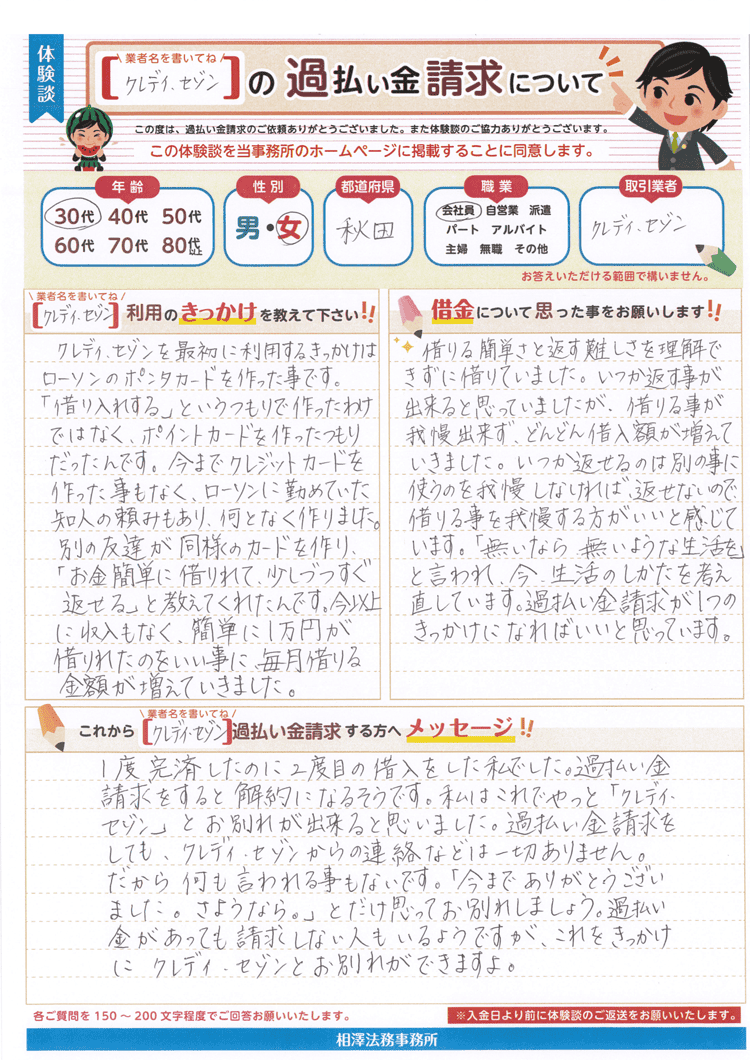 体験談
\ 業者名を書いてね /
[クレディ・セゾン]の過払い金請求について
この度は、過払い金請求のご依頼ありがとうございました。また体験談のご協力ありがとうございます。
この体験談を当事務所のホームページに掲載することに同意します。
年齢
30代 40代 50代
60代 70代 80代以上
性別
男・女
都道府県
秋田
職業
会社員 自営業 派遣
パート アルバイト
主婦 無職 その他
取引業者
クレディ・セゾン
お答えいただける範囲で構いません。
\ 業者名を書いてね /
[クレディ・セゾン]利用のきっかけを教えて下さい!!
クレディ・セゾンを最初に利用するきっかけは
ローソンのポンタカードを作った事です。
「借り入れする」というつもりで作ったわけ
ではなく、ポイントカードを作ったつもり
だったんです。今までクレジットカードを
作った事もなく、ローソンに勤めていた
知人の頼みもあり、何となく作りました。
別の友達が同様のカードを作り、
「お金簡単に借りれて、少しづつすぐ
返せる」と教えてくれたんです。今以上
に収入もなく、簡単に1万円が
借りれたのをいい事に、毎月借りる
金額が増えていきました。
借金について思った事をお願いします!!
借りる簡単さと返す難しさを理解で
きずに借りていました。いつか返す事が
出来ると思っていましたが、借りる事が
我慢出来ず、どんどん借入額が増えて
いきました。いつか返せるのは別の事に
使うのを我慢しなければ、返せないので、
借りる事を我慢する方がいいと感じて
います。「無いなら、無いような生活を」
と言われ、今、生活のしかたを考え
直しています。過払い金請求が1つの
きっかけになればいいと思っています。
\ 業者名を書いてね /
これから[クレディ・セゾン]過払い金請求する方へメッセージ!!
1度完済したのに2度目の借入をした私でした。過払い金
請求をすると解約になるそうです。私はこれでやっと「クレディ・
セゾン」とお別れが出来ると思いました。過払い金請求を
しても、クレディ・セゾンからの連絡などは一切ありません。
だから何も言われる事もないです。「今までありがとうござい
ました。さようなら。」とだけ思ってお別れしましょう。過払い
金があっても請求しない人もいるようですが、これをきっかけ
にクレディ・セゾンとお別れができますよ。
各ご質問を150〜200文字程度でご回答お願いいたします。
※入金日より前に体験談のご返送をお願いいたします。
相澤法務事務所